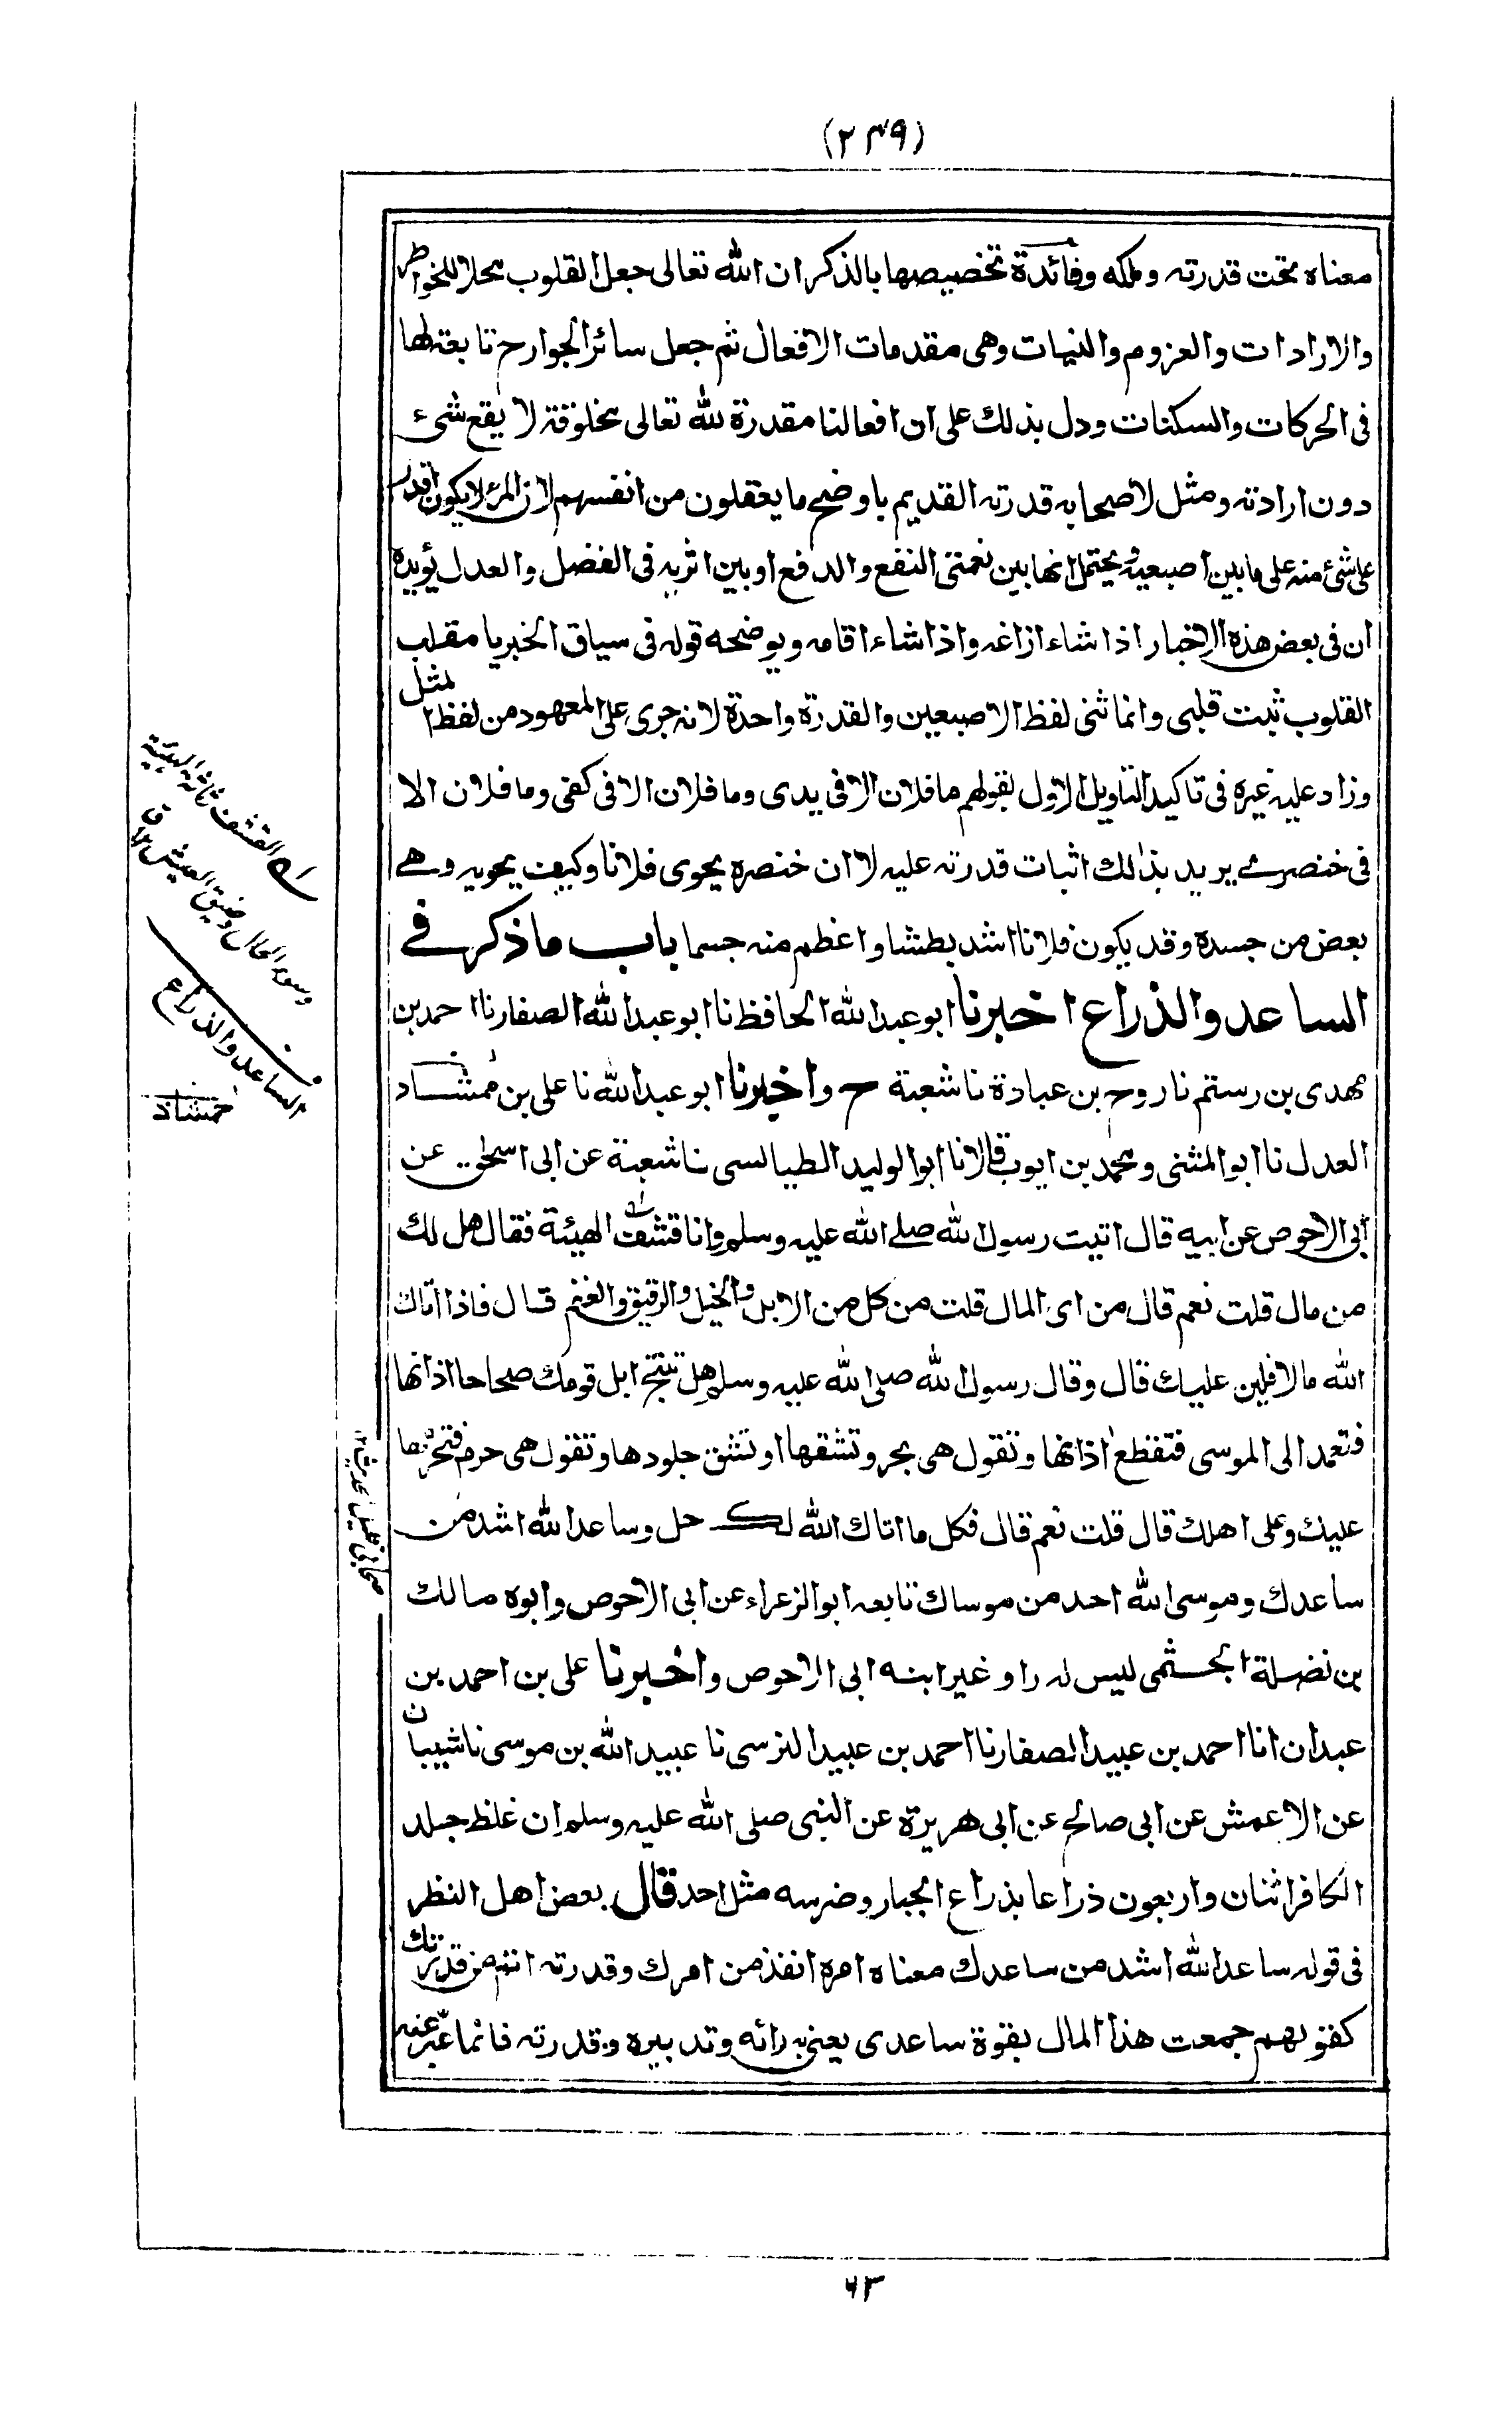 (٢٣٩)
معناه تحت قدرته وملكه وفائدة تخصيصها بالذكر ان الله تعالى جعل القلوب محلا للخواطر
والارادات والعزوم والنيات وهى مقدمات الافعال ثم جعل سائر الجوارح تابعة لها
فى الحركات والسكنات ودل بذلك على ان افعالنا مقدرة لله تعالى مخلوقة لا يقع شىء
دون ارادته ومثل لاصحابه قدرته القديم باوضح ما يعقلون من انفسهم لان المرء لا يكون اقدر
على شئ منه على ما بين اصبعيه ويحتمل انها بين نعمتى النفع والدفع او بين اثريه فى الفضل والعدل يؤيده
ان فى بعض هذه الاخبار اذا شاء ازاغه واذا شاء اقامه ويوضحه قوله فى سياق الخبر يا مقلب
القلوب ثبت قلبى وانما ثنى لفظ الاصبعين والقدرة واحدة لانه جرى على المعهود من لفظ المثل
وزاد عليه غيره فى تاكيد التاويل الاول بقولهم ما فلان الا فى يدى وما فلان الا فى كفى وما فلان الا
فى خنصرے يريد بذلك اثبات قدرته عليه لا ان خنصره يحوى فلانا وكيف يحويه وهے
بعض من جسده وقد يكون فلانا اشد بطشا واعظم منه جسما باب ما ذكر فے
الساعد والذراع اخبرنا ابو عبد الله الحافظ نا ابو عبد الله الصفار نا احمد بن
مهدى بن رستم نا روح بن عبادة نا شعبة ح واخبرنا ابو عبد الله نا على بن ممشاد
العدل نا ابو المثنى ومحمد بن ايوب قالا نا ابو الوليد الطيالسى نا شعبة عن ابى اسحق عن
ابى الاحوص عن ابيه قال اتيت رسول الله صلے الله عليه وسلم وانا قشف الهيئة فقال هل لك
من مال قلت نعم قال من اى المال قلت من كل من الابل والخيل والرقيق والغنم قال فاذا اتاك
الله مالا فلير عليك قال وقال رسول الله صلى الله عليه وسلم هل تنتج ابل قومك صحاحا اذانها
فتعمد الى الموسى فتقطع اذانها وتقول هى بحر وتشقها او تشق جلودها وتقول هى حرم فتحرمها
عليك وعلى اهلك قال قلت نعم قال فكل ما اتاك الله لك حل وساعد الله اشد من
ساعدك وموسى الله احد من موساك تابعه ابو الزعراء عن ابى الاحوص وابوه مالك
بن نضلة الجشمى ليس له راو غير ابنه ابى الاحوص واخبرنا على بن احمد بن
عبدان انا احمد بن عبيد الصفار نا احمد بن عبيد النرسى نا عبيد الله بن موسى نا شيبان
عن الاعمش عن ابى صالح عن ابى هريرة عن النبى صلى الله عليه وسلم ان غلظ جلد
الكافر اثنان واربعون ذراعا بذراع الجبار وضرسه مثل احد قال بعض اهل النظر
فى قوله ساعد الله اشد من ساعدك معناه امره انفذ من امرك وقدرته اتم من قدرتك
كقولهم جمعت هذا المال بقوة ساعدى يعنى به رائه وتدبيره وقدرته فانما عبر عنه
القشف رثاثة الهيئة
وسوء الحال وضيق العيش ق ١٢
الساعد والذراع
حمشاذ
٦٣